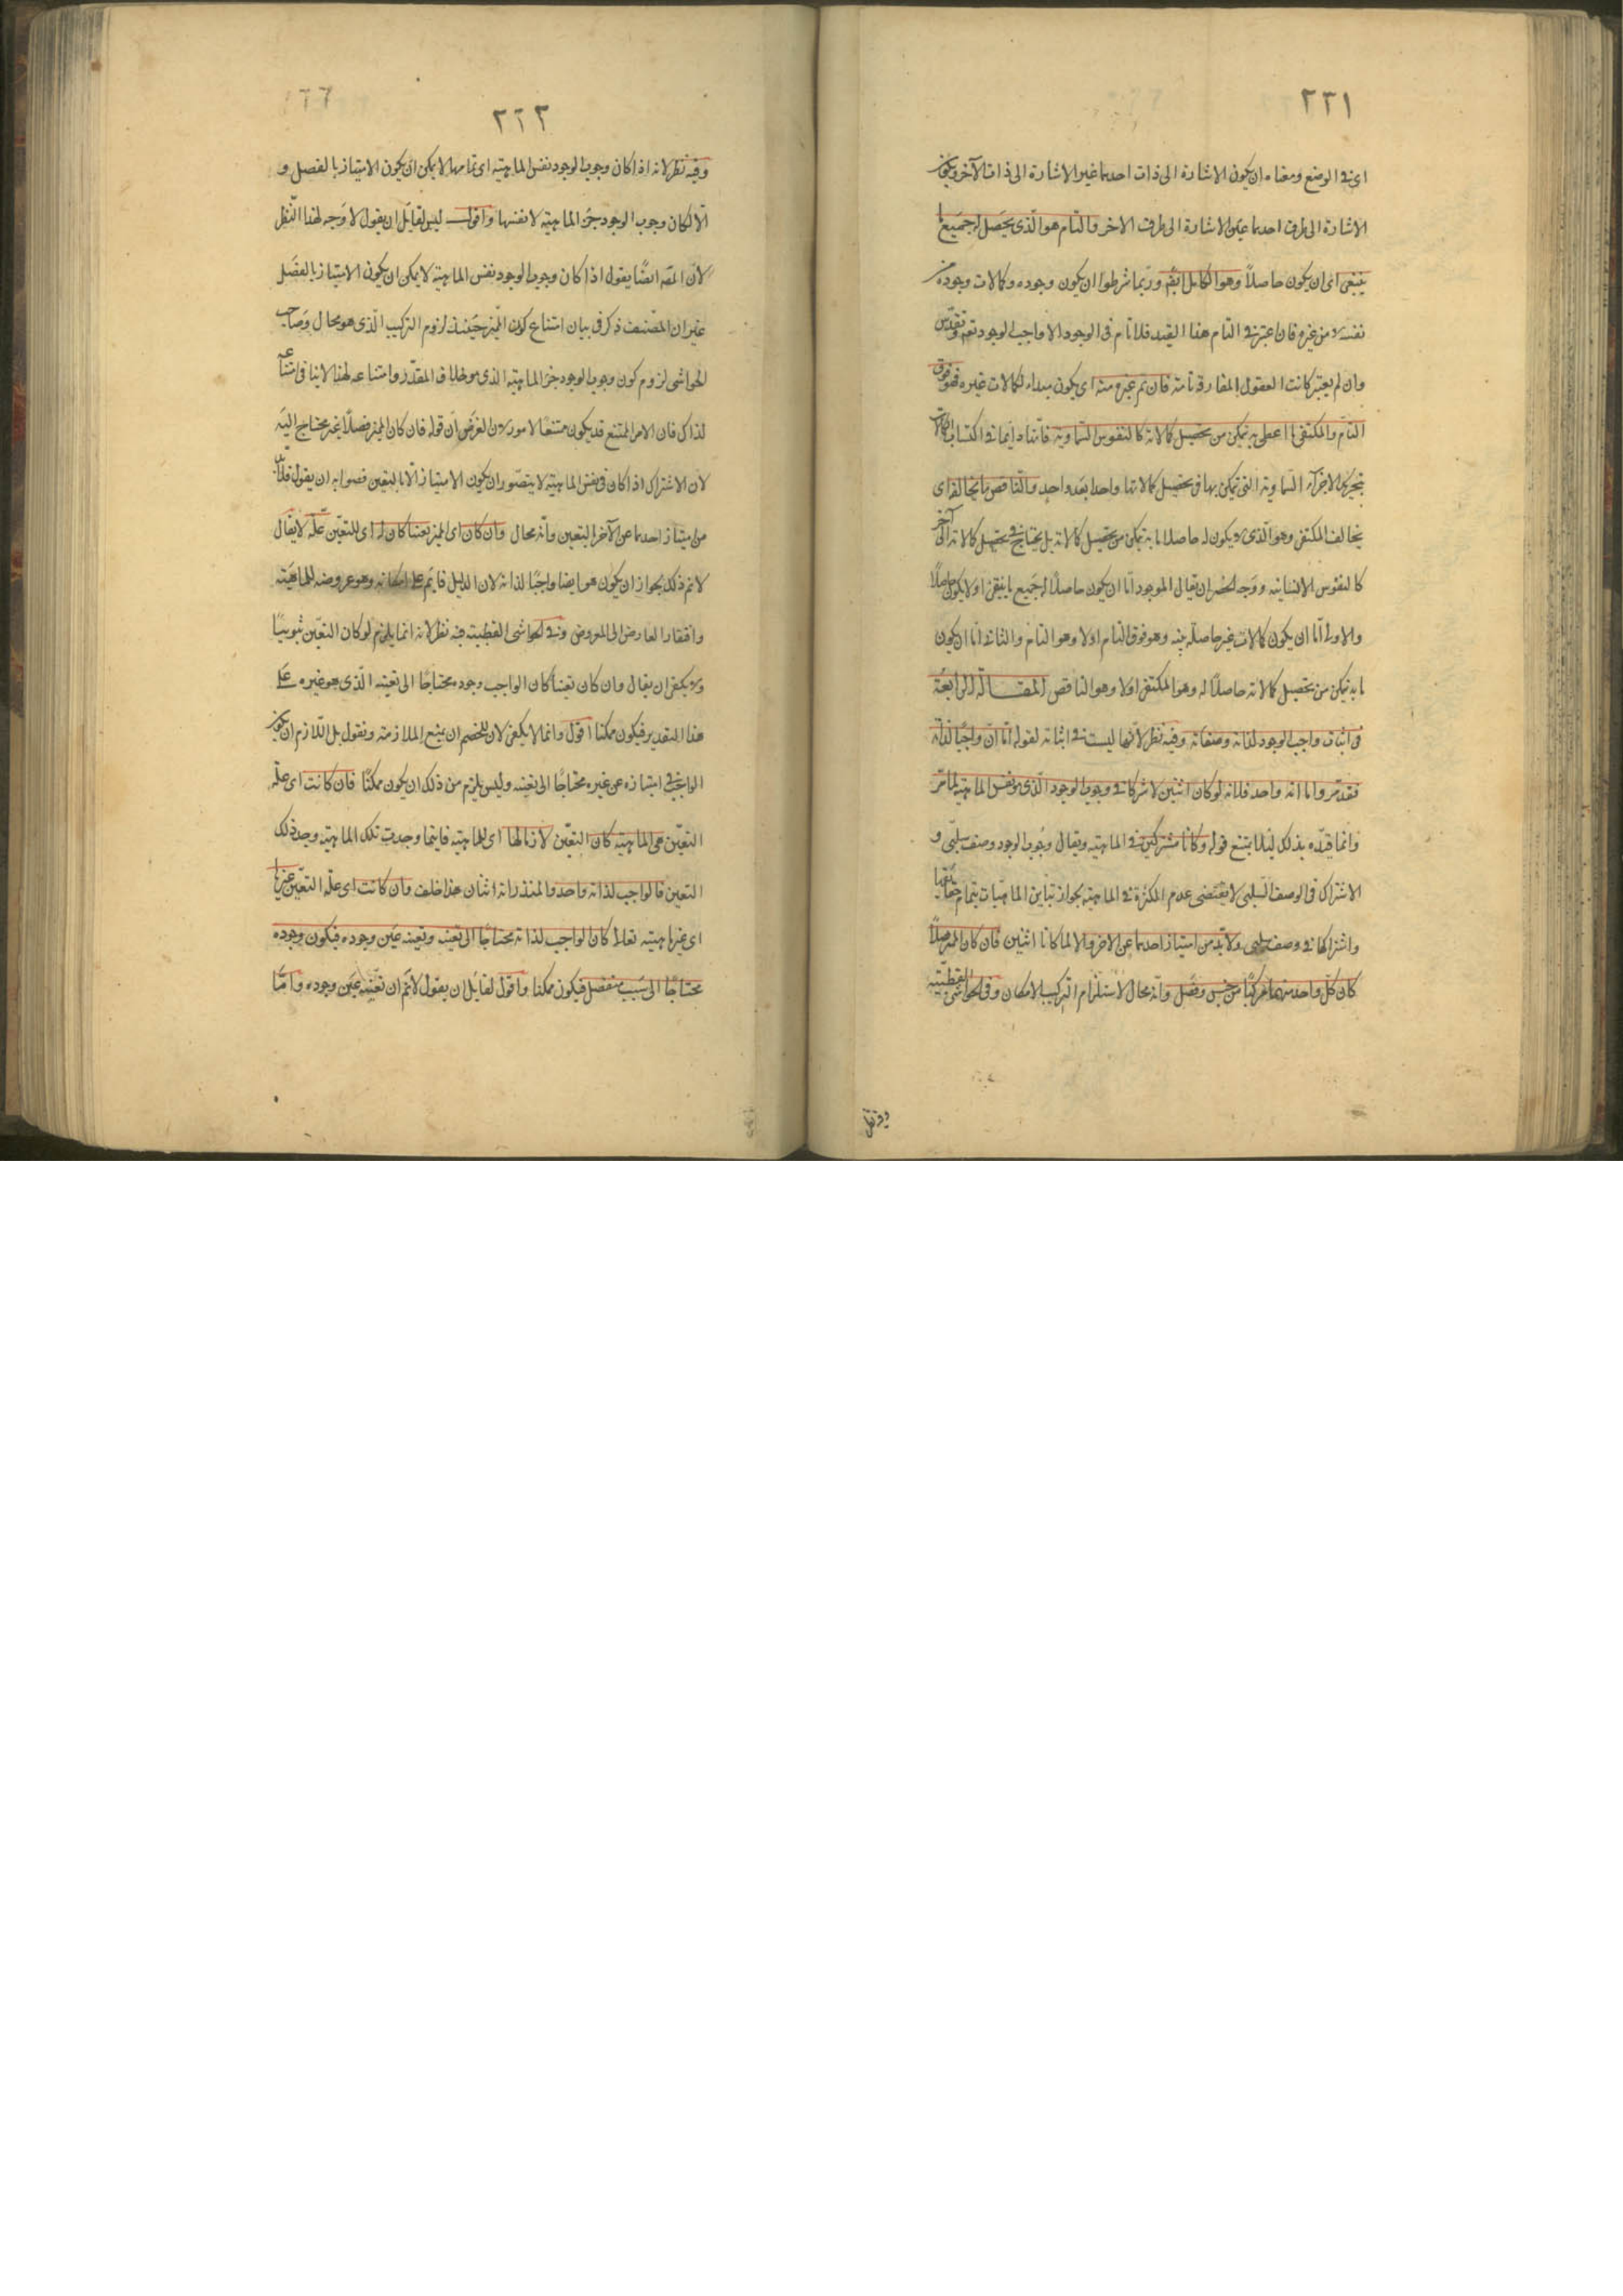 ٢٢١
اى فى الوضع ومعناه ان يكون الاشارة الى ذات احدهما غير الاشارة الى ذات الآخر ويكون
الاشارة الى طرف احدهما عين الاشارة الى طرف الاخر والتام هو الذى يحصل له جميع ما
ينبغى اى ان يكون حاصلاً وهو الكامل ايضه وربما شرطوا ان يكون وجوده وكمالات وجوده من
نفسه لا من غيره فان اعتبر فى التام هذا القيد فلا تام فى الوجود الا واجب الوجود تعه وتقدس
وان لم يعتبر كانت العقول المفارقة تامة فان تم غيره منه اى يكون مبداء لكمالات غيره فهو فوق
التام والمكتفى ما اعطى به يتمكن من تحصيل كمالاته كالنفوس السماوية فانها دايما فى اكتساب الكمالات
بتحريك الاجرام السماوية التى تمكن بها فى تحصيل كمالاتها واحدا بعد واحد والناقص ما يخالفه اى
يخالف المكتفى وهو الذى لا يكون له حاصلا ما به يتمكن من تحصيل كمالاته بل يحتاج فى تحصيل كمالاته الى آخر
كالنفوس الانسانية ووجه الحصر ان يقال الموجود اما ان يكون حاصلاً له جميع ما ينبغى او لا يكون حاصلاً
والاول اما ان يكون كمالات غيره حاصلة منه وهو فوق التام او لا وهو التام والثانى اما ان يكون
ما به يتمكن من تحصيل كمالاته حاصلاً له وهو المكتفى او لا وهو الناقص المقالة الرابعة
فى اثبات واجب الوجود لذاته وصفاته وفيه نظر لانها ليست فى اثباته لقوله اما ان واجبًا لذاته
فقد مر واما انه واحد فلانه لو كان اثنين لاشتركا فى وجوب الوجود الذى هو نفس الماهية لما مر
وانما قيده بذلك لئلا يمنع قوله وكانا مشتركين فى الماهية ويقال وجوب الوجود وصف سلبى و
الاشتراك فى الوصف السلبى لا يقتضى عدم الكثرة فى الماهية بجواز تباين الماهيات بتمام حقايقها
واشتراكها فى وصف سلبى ولابد من امتياز احدهما عن الاخر والا لما كانا اثنين فان كان المميز فصلاً
كان كل واحد منهما مركبًا من جنس وفصل وانه محال لاستلزام التركيب الامكان وفى الحواشى القطبية
وفيه نظر
٢٢٢
وفيه نظر لانه اذا كان وجوب الوجود نفس الماهية اى تمامها لا يمكن ان يكون الامتياز بالفصل و
الا لكان وجوب الوجود جزء الماهية لا نفسها واقول ليس لقايل ان يقول لا وجه لهذا النظر
لان المصه ايضًا يقول اذا كان وجوب الوجود نفس الماهية لا يمكن ان يكون الامتياز بالفصل
غير ان المصنف ذكر فى بيان امتناع كون المميز حينئذ لزوم التركيب الذى هو محال وصاحب
الحواشى لزوم كون وجوب الوجود جزء الماهية الذى هو خلاف المقدر وامتناعه لهذا لا ينافى امتناعه
لذاك فان الامر الممتنع قد يكون ممتنعًا لامور لان الغرض ان قوله فان كان المميز فصلاً غير محتاج اليه
لان الاشتراك اذا كان فى نفس الماهية لا يتصور ان يكون الامتياز الا بالتعين فصوابه ان يقول فلابد
من امتياز احدهما عن الآخر بالتعين وانه محال وان كان اى المميز تعينا كان له اى للتعين علة لا يقال
لا نم ذلك بجواز ان يكون هو ايضا واجبًا لذاته لان الدليل قايم على امكانه وهو عروضه للماهية
وافتقار العارض الى المعروض وفى الحواشى القطبية فيه نظر لانه انما يلزم لو كان التعين ثبوتيًا
ولا يكفى ان يقال وان كان تعينًا كان الواجب وجوده محتاجًا الى تعينه الذى هو غيره على
هذا التقدير فيكون ممكنا اقول وانما لا يكفى لان للخصم ان يمنع الملازمة ويقول بل اللازم ان يكون
الواجب فى امتيازه عن غيره محتاجًا الى تعينه وليس يلزم من ذلك ان يكون ممكنًا فان كانت اى علة
التعين هى الماهية كان التعين لازما لها اى للماهية فاينما وجدت تلك الماهية وجد ذلك
التعين فالواجب لذاته واحد والمقدر انه اثنان هذا خلف وان كانت اى علة التعين غيرها
اى غير ماهيته تعالى كان الواجب لذاته محتاجًا الى تعينه وتعينه عين وجوده فيكون وجوده
محتاجًا الى سبب منفصل فيكون ممكنا واقول لقايل ان يقول لا نم ان تعينه عين وجوده واما